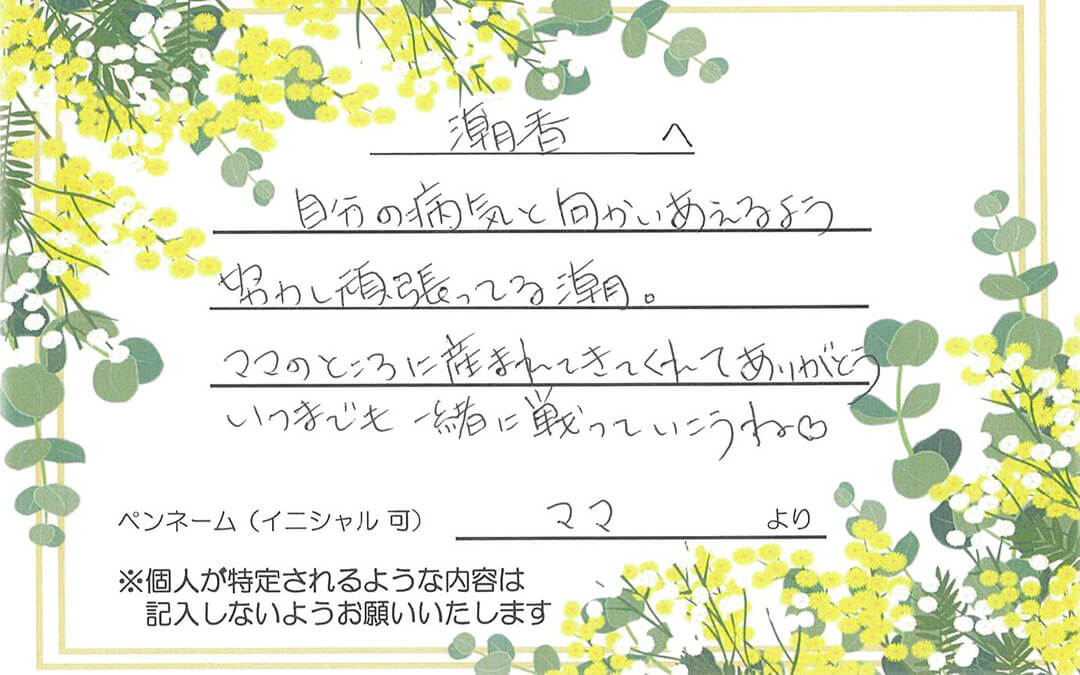 潮香 へ
自分の病気と向かいあえるよう
努力し頑張ってる潮。
ママのところに産まれてきてくれてありがとう
いつまでも一緒に戦っていこうね♡
ペンネーム（イニシャル 可） ママ より
※個人が特定されるような内容は
記入しないようお願いいたします